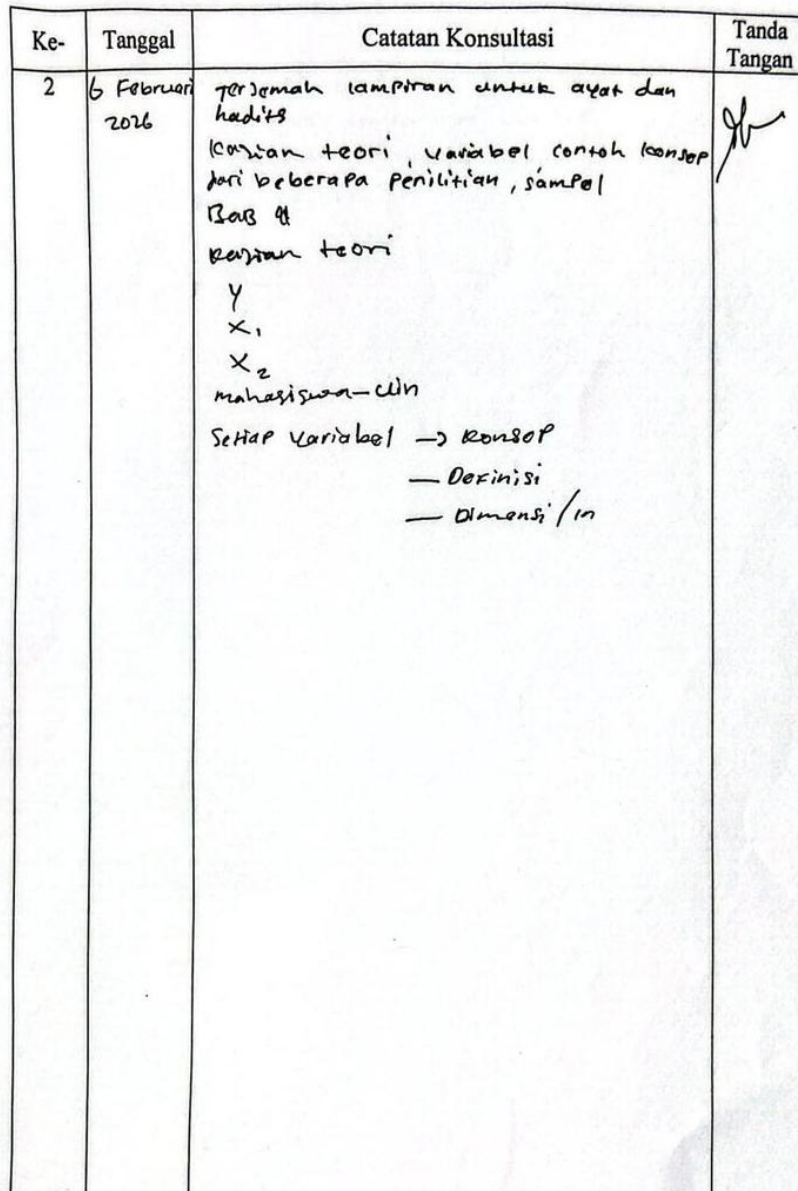 Ke- Tanggal Catatan Konsultasi Tanda Tangan
2 6 Februari 2026
Terjemah lampiran untuk ayat dan
hadits
Kajian teori, variabel contoh konsep
dari beberapa penilitian, sampel
Bab
Kajian teori
Y
X₁
X₂
mahasiswa - Uin
Setiap variabel → Konsep
— Definisi
— Dimensi / in